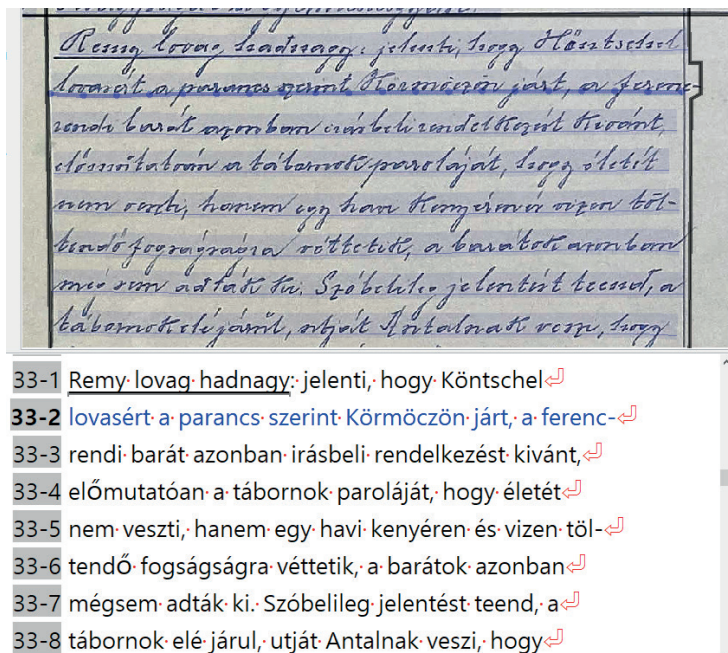 Remy lovag hadnagy: jelenti, hogy Höntschel
lovasért a parancs szerint Körmöczön járt, a ferenc-
rendi barát azonban irásbeli rendelkezést kivánt,
előmutatóan a tábornok paroláját, hogy életét
nem veszti, hanem egy havi kenyéren és vizen töl-
tendő fogságságra véttetik, a barátok azonban
mégsem adták ki. Szóbelileg jelentést teend, a
tábornok elé járul, utját Antalnak veszi, hogy
33-1 Remy lovag hadnagy: jelenti, hogy Köntschel
33-2 lovasért a parancs szerint Körmöczön járt, a ferenc-
33-3 rendi barát azonban irásbeli rendelkezést kivánt,
33-4 előmutatóan a tábornok paroláját, hogy életét
33-5 nem veszti, hanem egy havi kenyéren és vizen töl-
33-6 tendő fogságságra véttetik, a barátok azonban
33-7 mégsem adták ki. Szóbelileg jelentést teend, a
33-8 tábornok elé járul, utját Antalnak veszi, hogy